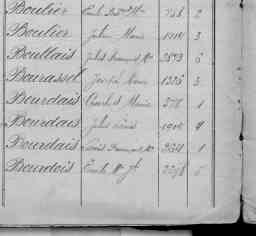 Boulier Emile 748 2
Boulier Julien Marie 1914 3
Boullais Jules François Mie 2873 6
Bourassel Joseph Marie 1336 3
Bourdais Charles Marie 278 1
Bourdais Jules Louis 1904 4
Bourdais Louis François Mie 2534 1
Bourdois Emile Me Jh 5